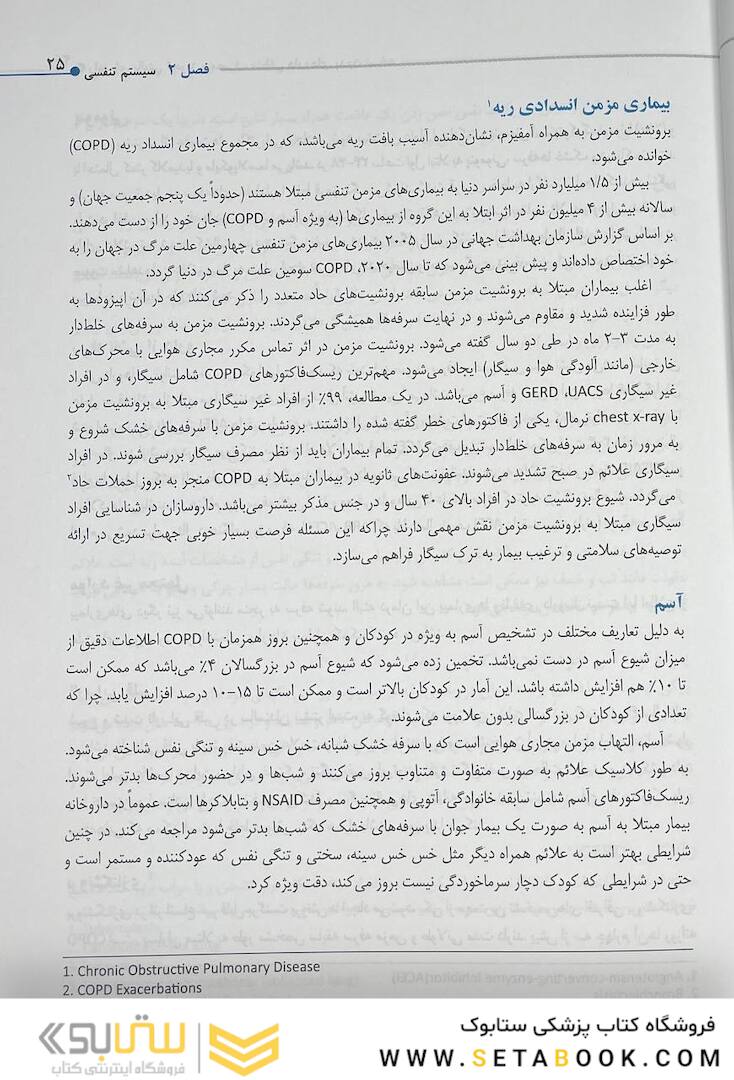 فصل ۲ سیستم تنفسی ۲۵
بیماری مزمن انسدادی ریه۱
برونشیت مزمن به همراه آمفیزم، نشان‌دهنده آسیب بافت ریه می‌باشد، که در مجموع بیماری انسداد ریه (COPD)
خوانده می‌شود.
بیش از ۱/۵ میلیارد نفر در سراسر دنیا به بیماری‌های مزمن تنفسی مبتلا هستند (حدوداً یک پنجم جمعیت جهان) و
سالانه بیش از ۴ میلیون نفر در اثر ابتلا به این گروه از بیماری‌ها (به ویژه آسم و COPD) جان خود را از دست می‌دهند.
بر اساس گزارش سازمان بهداشت جهانی در سال ۲۰۰۵ بیماری‌های مزمن تنفسی چهارمین علت مرگ در جهان را به
خود اختصاص داده‌اند و پیش بینی می‌شود که تا سال ۲۰۲۰، COPD سومین علت مرگ در دنیا گردد.
اغلب بیماران مبتلا به برونشیت مزمن سابقه برونشیت‌های حاد متعدد را ذکر می‌کنند که در آن اپیزودها به
طور فزاینده شدید و مقاوم می‌شوند و در نهایت سرفه‌ها همیشگی می‌گردند. برونشیت مزمن به سرفه‌های خلط‌دار
به مدت ۳-۲ ماه در طی دو سال گفته می‌شود. برونشیت مزمن در اثر تماس مکرر مجاری هوایی با محرک‌های
خارجی (مانند آلودگی هوا و سیگار) ایجاد می‌شود. مهم‌ترین ریسک‌فاکتورهای COPD شامل سیگار، و در افراد
غیر سیگاری GERD ،UACS و آسم می‌باشد. در یک مطالعه، ۹۹٪ از افراد غیر سیگاری مبتلا به برونشیت مزمن
با chest x-ray نرمال، یکی از فاکتورهای خطر گفته شده را داشتند. برونشیت مزمن با سرفه‌های خشک شروع و
به مرور زمان به سرفه‌های خلط‌دار تبدیل می‌گردد. تمام بیماران باید از نظر مصرف سیگار بررسی شوند. در افراد
سیگاری علائم در صبح تشدید می‌شوند. عفونت‌های ثانویه در بیماران مبتلا به COPD منجر به بروز حملات حاد۲
می‌گردد. شیوع برونشیت حاد در افراد بالای ۴۰ سال و در جنس مذکر بیشتر می‌باشد. داروسازان در شناسایی افراد
سیگاری مبتلا به برونشیت مزمن نقش مهمی دارند چراکه این مسئله فرصت بسیار خوبی جهت تسریع در ارائه
توصیه‌های سلامتی و ترغیب بیمار به ترک سیگار فراهم می‌سازد.
آسم
به دلیل تعاریف مختلف در تشخیص آسم به ویژه در کودکان و همچنین بروز همزمان با COPD اطلاعات دقیق از
میزان شیوع آسم در دست نمی‌باشد. تخمین زده می‌شود که شیوع آسم در بزرگسالان ۴٪ می‌باشد که ممکن است
تا ۱۰٪ هم افزایش داشته باشد. این آمار در کودکان بالاتر است و ممکن است تا ۱۵-۱۰ درصد افزایش یابد. چرا که
تعدادی از کودکان در بزرگسالی بدون علامت می‌شوند.
آسم، التهاب مزمن مجاری هوایی است که با سرفه خشک شبانه، خس خس سینه و تنگی نفس شناخته می‌شود.
به طور کلاسیک علائم به صورت متفاوت و متناوب بروز می‌کنند و شب‌ها و در حضور محرک‌ها بدتر می‌شوند.
ریسک‌فاکتورهای آسم شامل سابقه خانوادگی، آتوپی و همچنین مصرف NSAID و بتابلاکرها است. عموماً در داروخانه
بیمار مبتلا به آسم به صورت یک بیمار جوان با سرفه‌های خشک که شب‌ها بدتر می‌شود مراجعه می‌کند. در چنین
شرایطی بهتر است به علائم همراه دیگر مثل خس خس سینه، سختی و تنگی نفس که عودکننده و مستمر است و
حتی در شرایطی که کودک دچار سرماخوردگی نیست بروز می‌کند، دقت ویژه کرد.
1. Chronic Obstructive Pulmonary Disease
2. COPD Exacerbations
فروشگاه کتاب پزشکی ستابوک
WWW.SETABOOK.COM
ستابوک
فروشگاه اینترنتی کتاب